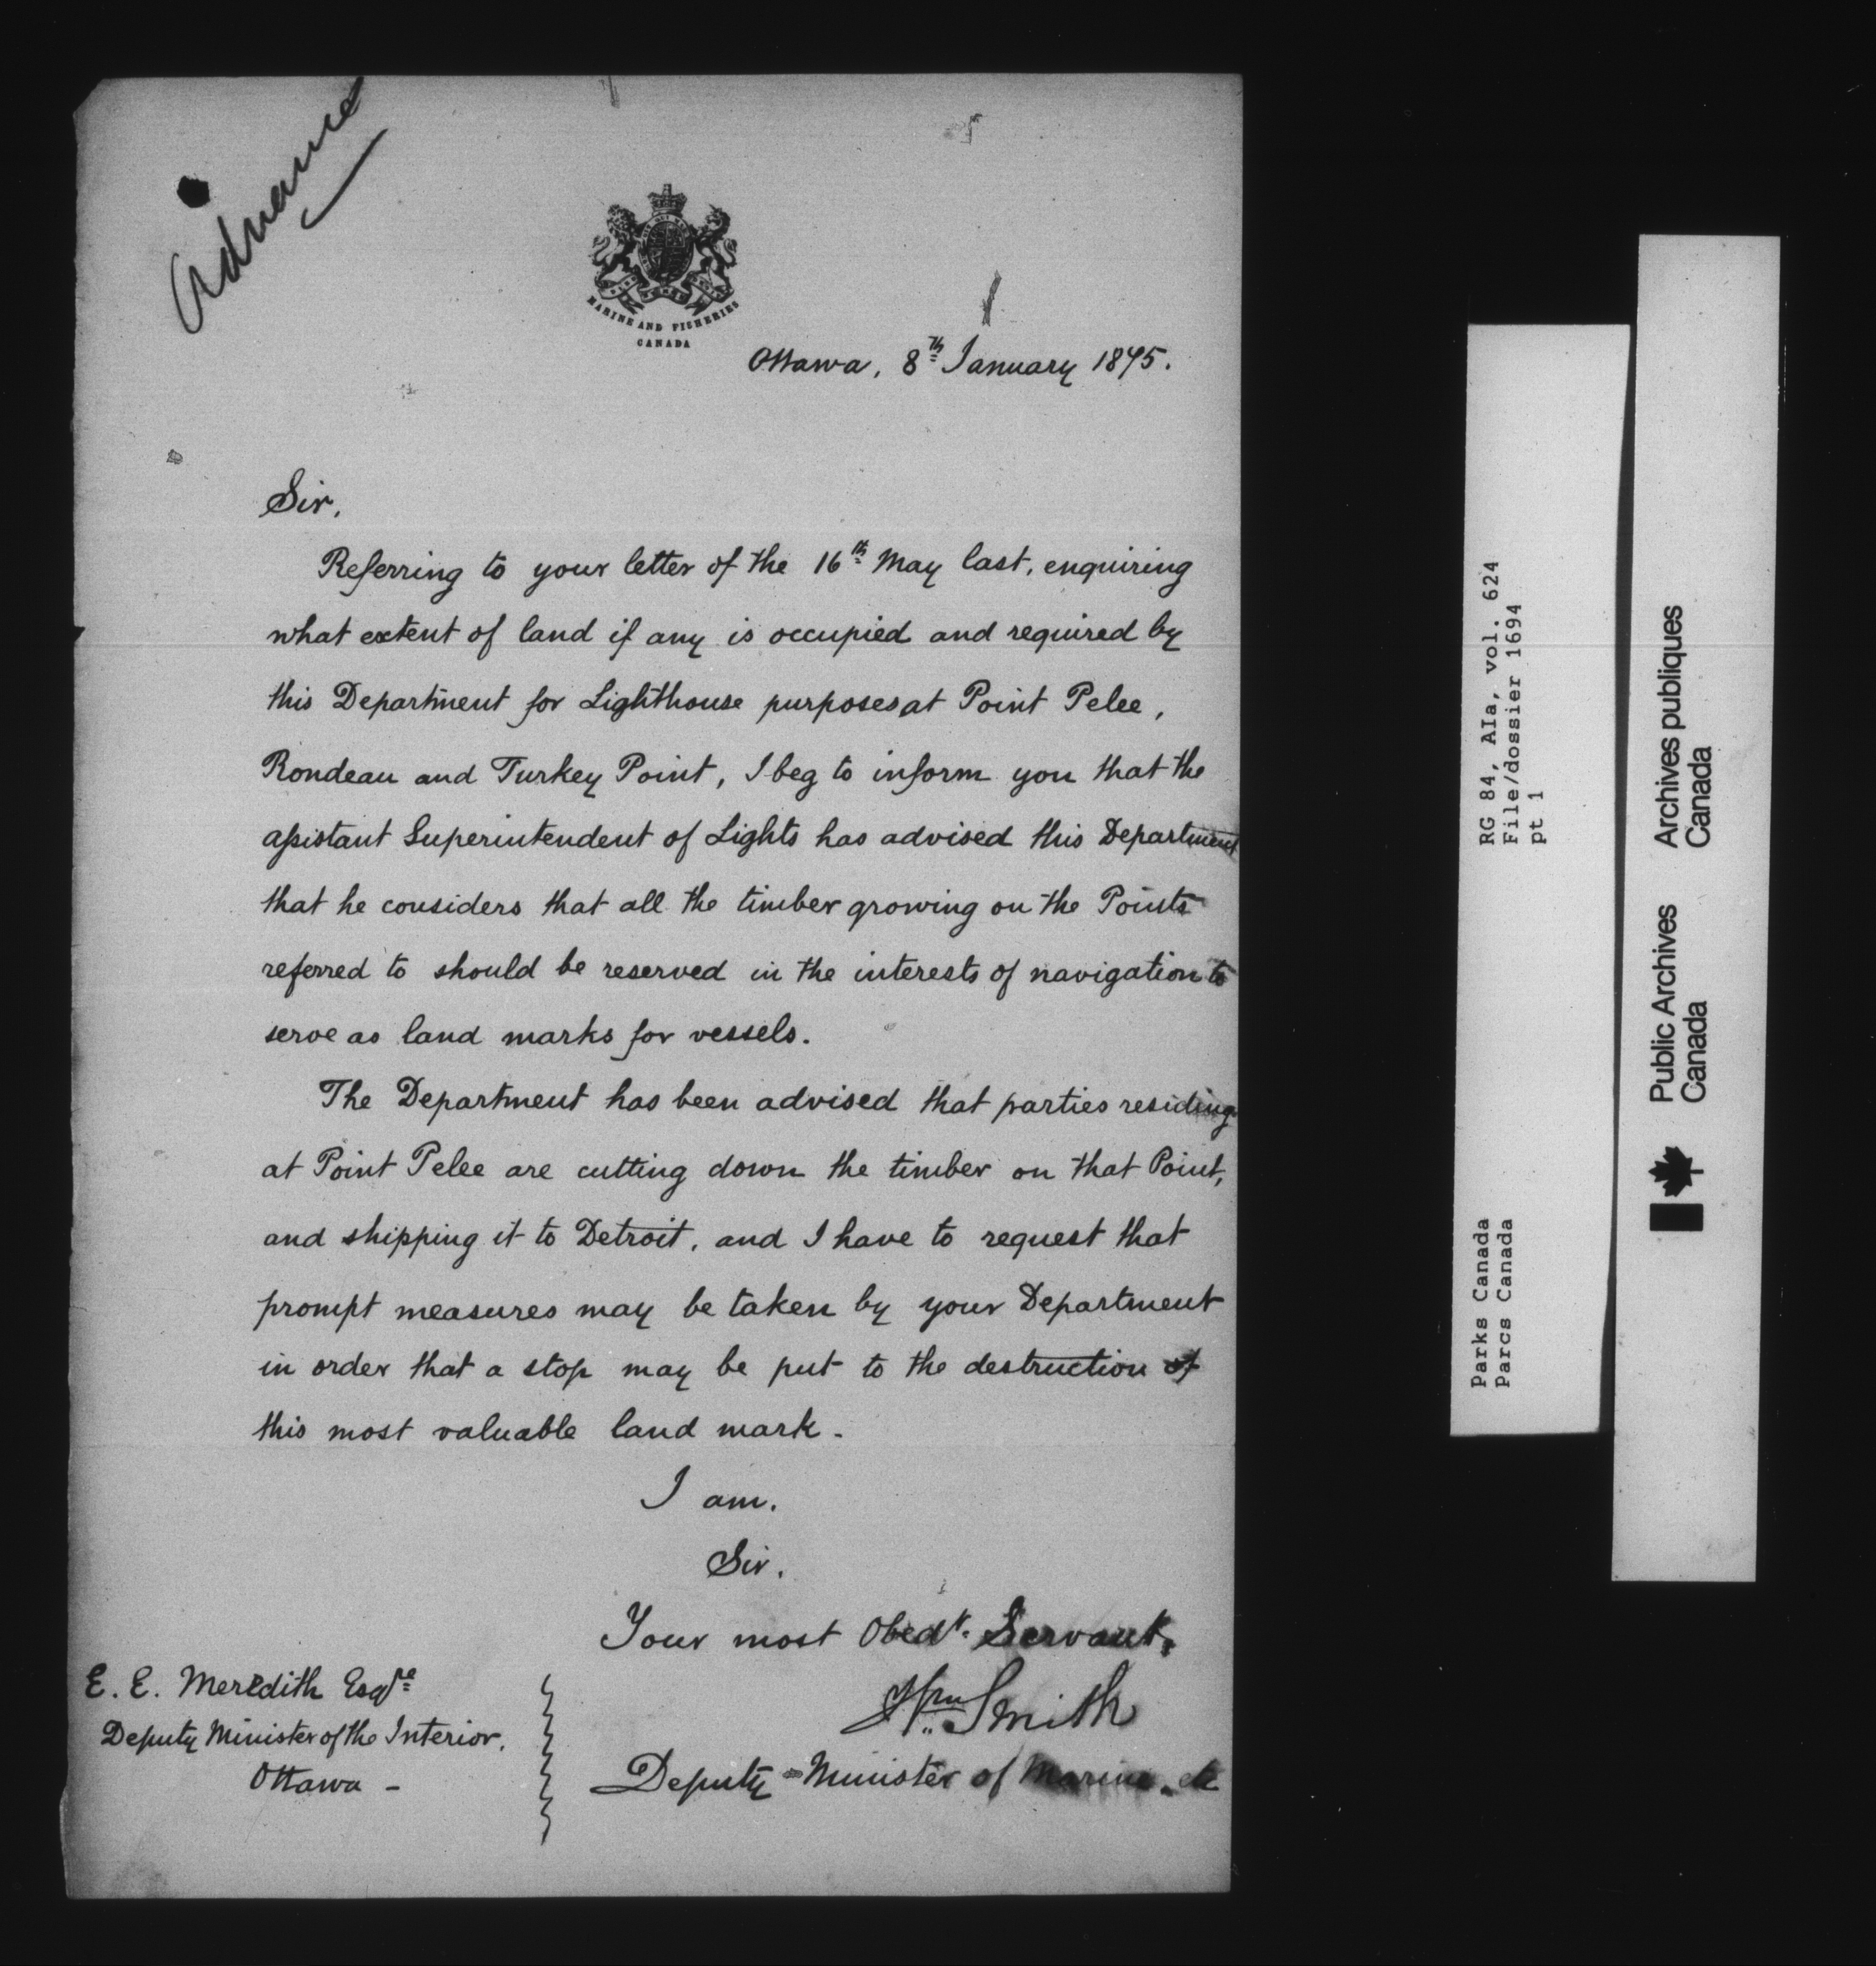 Advance
MARINE AND FISHERIES
CANADA
Ottawa, 8th January 1875.
Sir,
Referring to your letter of the 16th May last, enquiring
what extent of land if any is occupied and required by
this Department for Lighthouse purposes at Point Pelee,
Rondeau and Turkey Point, I beg to inform you that the
assistant Superintendent of Lights has advised this Department
that he considers that all the timber growing on the Points
referred to should be reserved in the interests of navigation to
serve as land marks for vessels.
The Department has been advised that parties residing
at Point Pelee are cutting down the timber on that Point,
and shipping it to Detroit, and I have to request that
prompt measures may be taken by your Department
in order that a stop may be put to the destruction of
this most valuable land mark.
I am.
Sir.
Your most Obedt. Servant.
Wm Smith
Deputy Minister of Marine. etc
E. E. Meredith Esqre
Deputy Minister of the Interior.
Ottawa -
RG 84, AIa, vol. 624
File/dossier 1694
pt 1
Parks Canada
Parcs Canada
Public Archives
Canada
Archives publiques
Canada